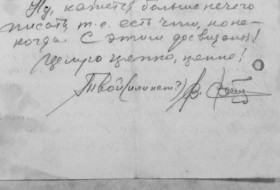 Ну, кажется больше нечего
писать т.е. есть что, но не-
когда. С этим досвидания!
Целую цепко, цепко!
Твой (или нет?) В.